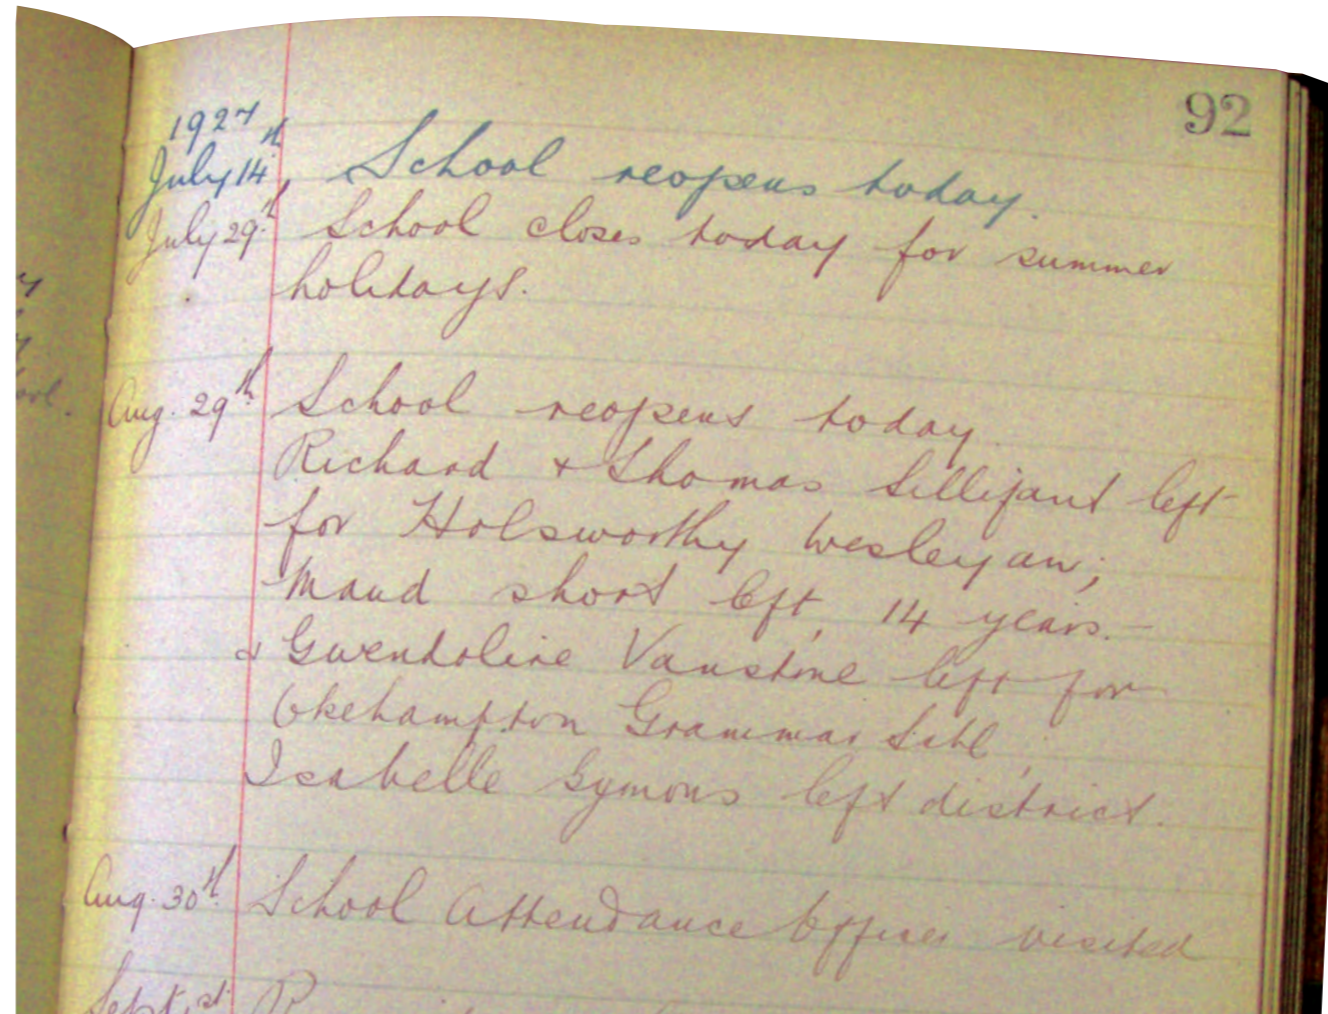 92
1927
July 14th, School reopens today.
July 29th School closes today for summer
holidays.
Aug. 29th School reopens today.
Richard & Thomas Sillifant left
for Holsworthy Wesleyan;
Maud Short left, 14 years. —
& Gwendoline Vanstone left for
Okehampton Grammar Schl,
Isabelle Symons left district.
Aug. 30th School Attendance Officer visited
Sept. 1st